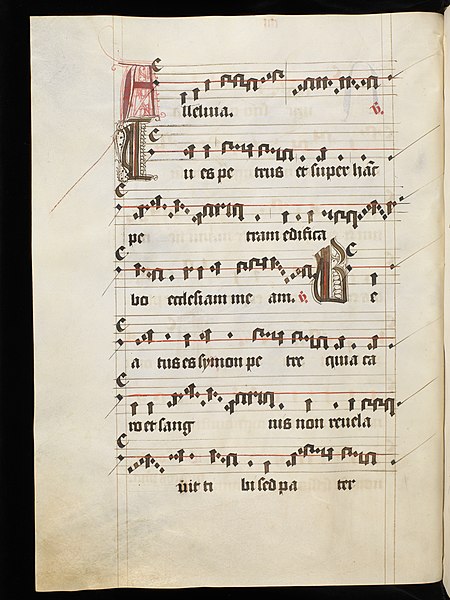 Alleluia. V.
Tu es pe trus et super hāc
pe tram edifica
bo ecclesiam me am. V. Be
a tus es symon pe tre quia ca
ro et sang uis non reuela
uit ti bi sed pa ter